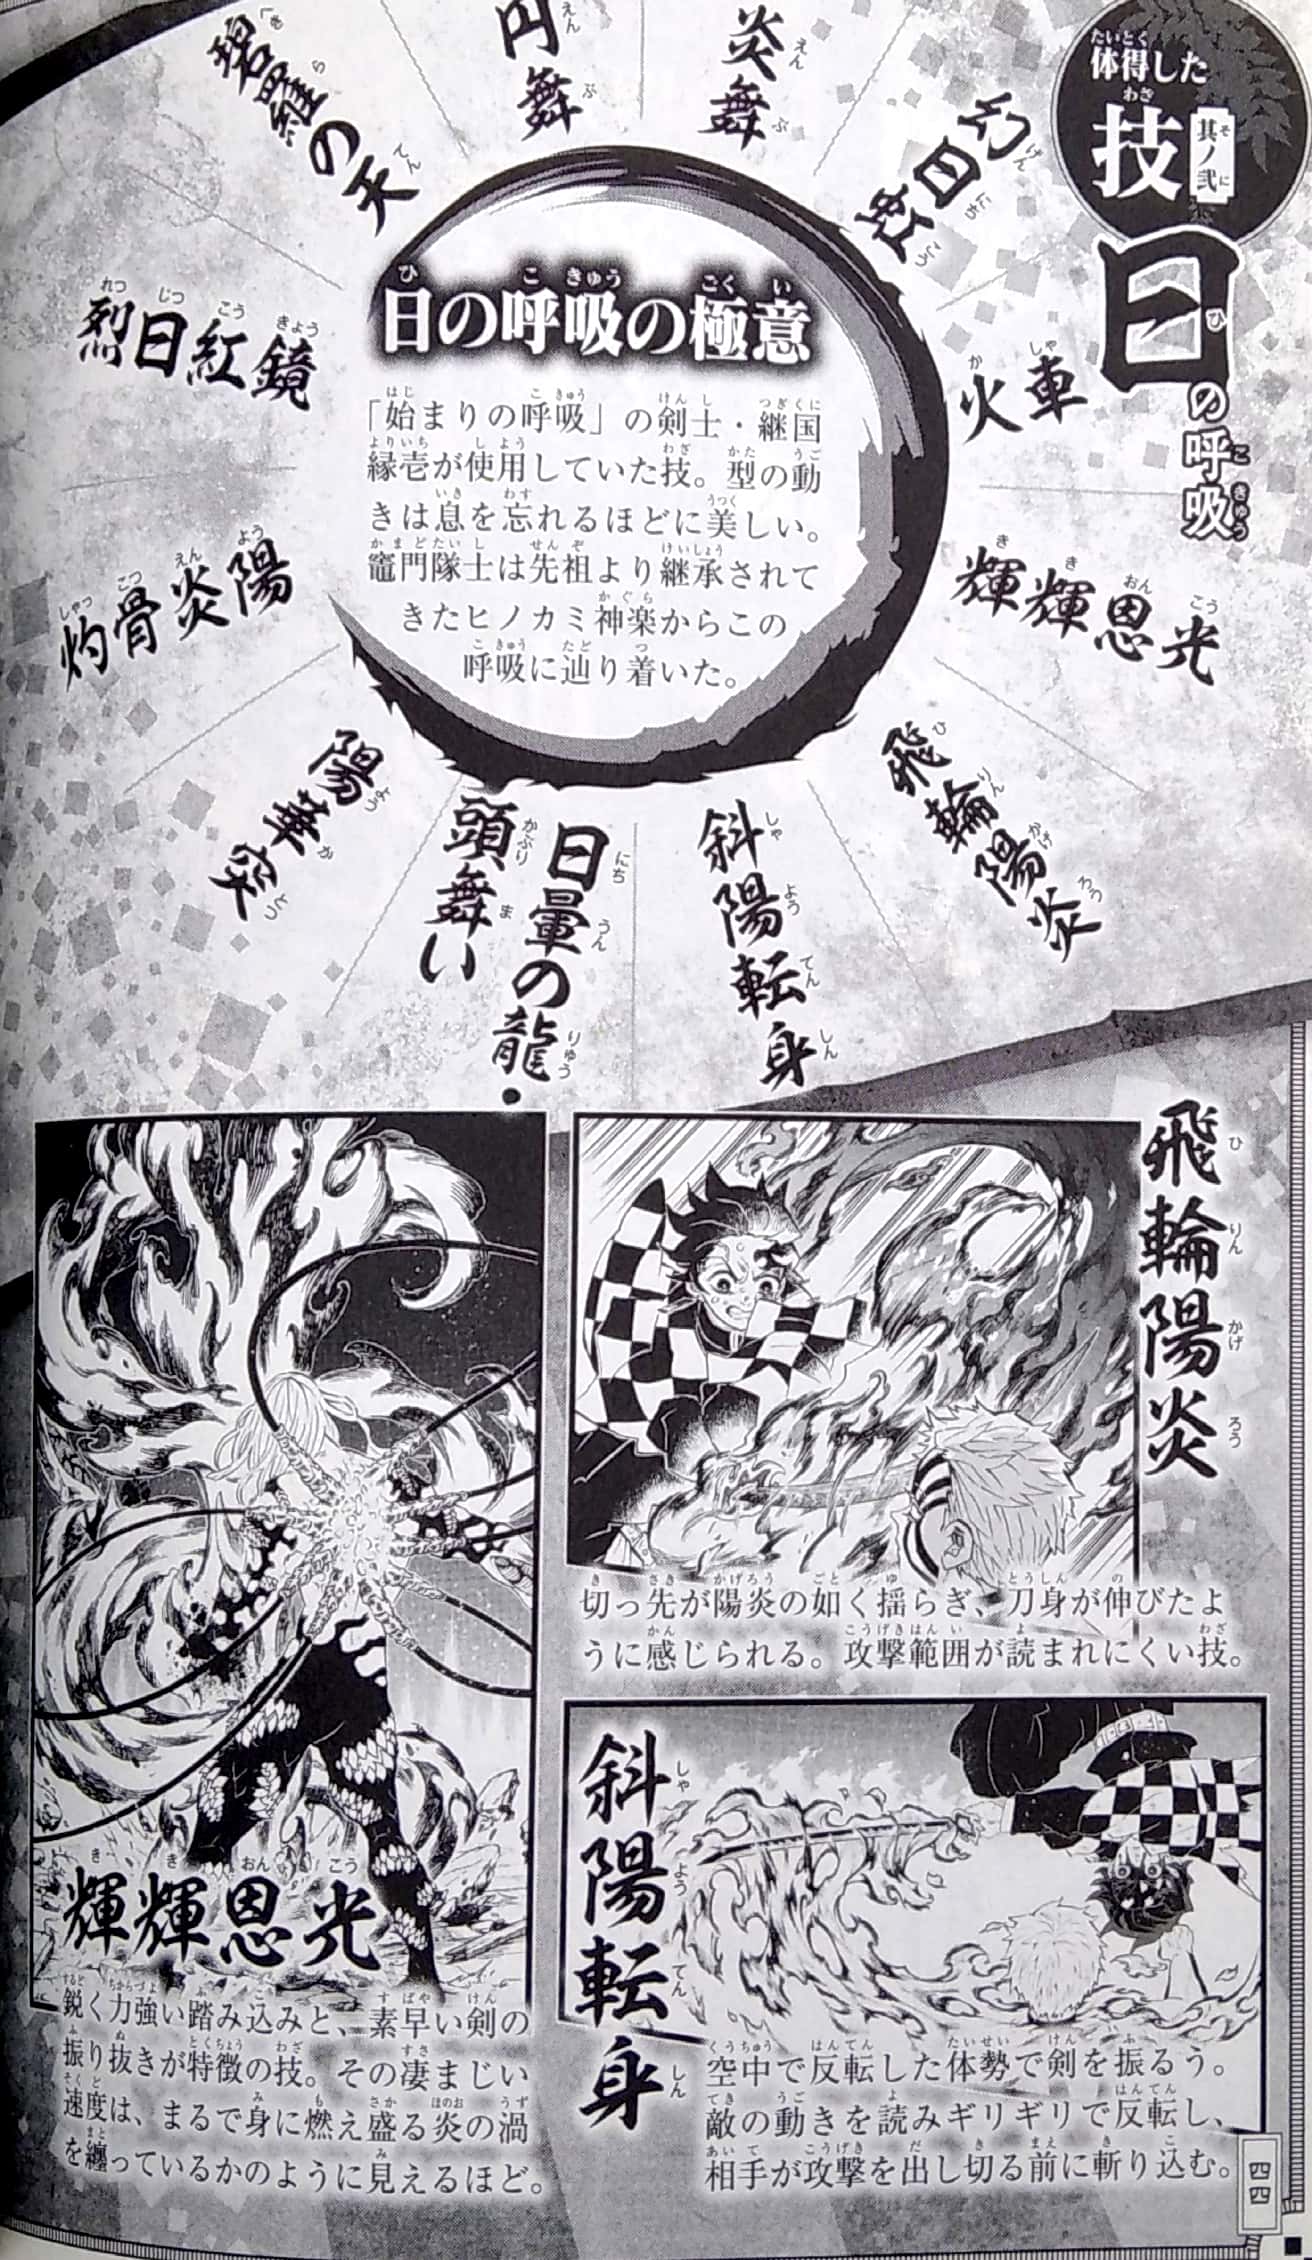 体得した
技
其ノ弐
日の呼吸
円舞
炎舞
幻日虹
火車
輝輝恩光
飛輪陽炎
斜陽転身
日暈の龍・
頭舞い
陽華突
灼骨炎陽
烈日紅鏡
碧羅の天
日の呼吸の極意
「始まりの呼吸」の剣士・継国
縁壱が使用していた技。型の動
きは息を忘れるほどに美しい。
竈門隊士は先祖より継承されて
きたヒノカミ神楽からこの
呼吸に辿り着いた。
飛輪陽炎
切っ先が陽炎の如く揺らぎ、刀身が伸びたよ
うに感じられる。攻撃範囲が読まれにくい技。
斜陽転身
空中で反転した体勢で剣を振るう。
敵の動きを読みギリギリで反転し、
相手が攻撃を出し切る前に斬り込む。
輝輝恩光
鋭く力強い踏み込みと、素早い剣の
振り抜きが特徴の技。その凄まじい
速度は、まるで身に燃え盛る炎の渦
を纏っているかのように見えるほど。
四四